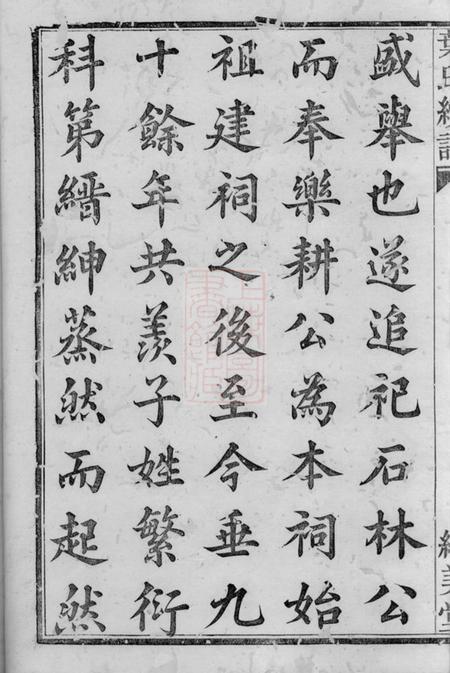 盛舉也遂追祀石林公
而奉樂耕公為本祠始
祖建祠之後至今垂九
十餘年共羨子姓繁衍
科第縉紳蒸然而起然